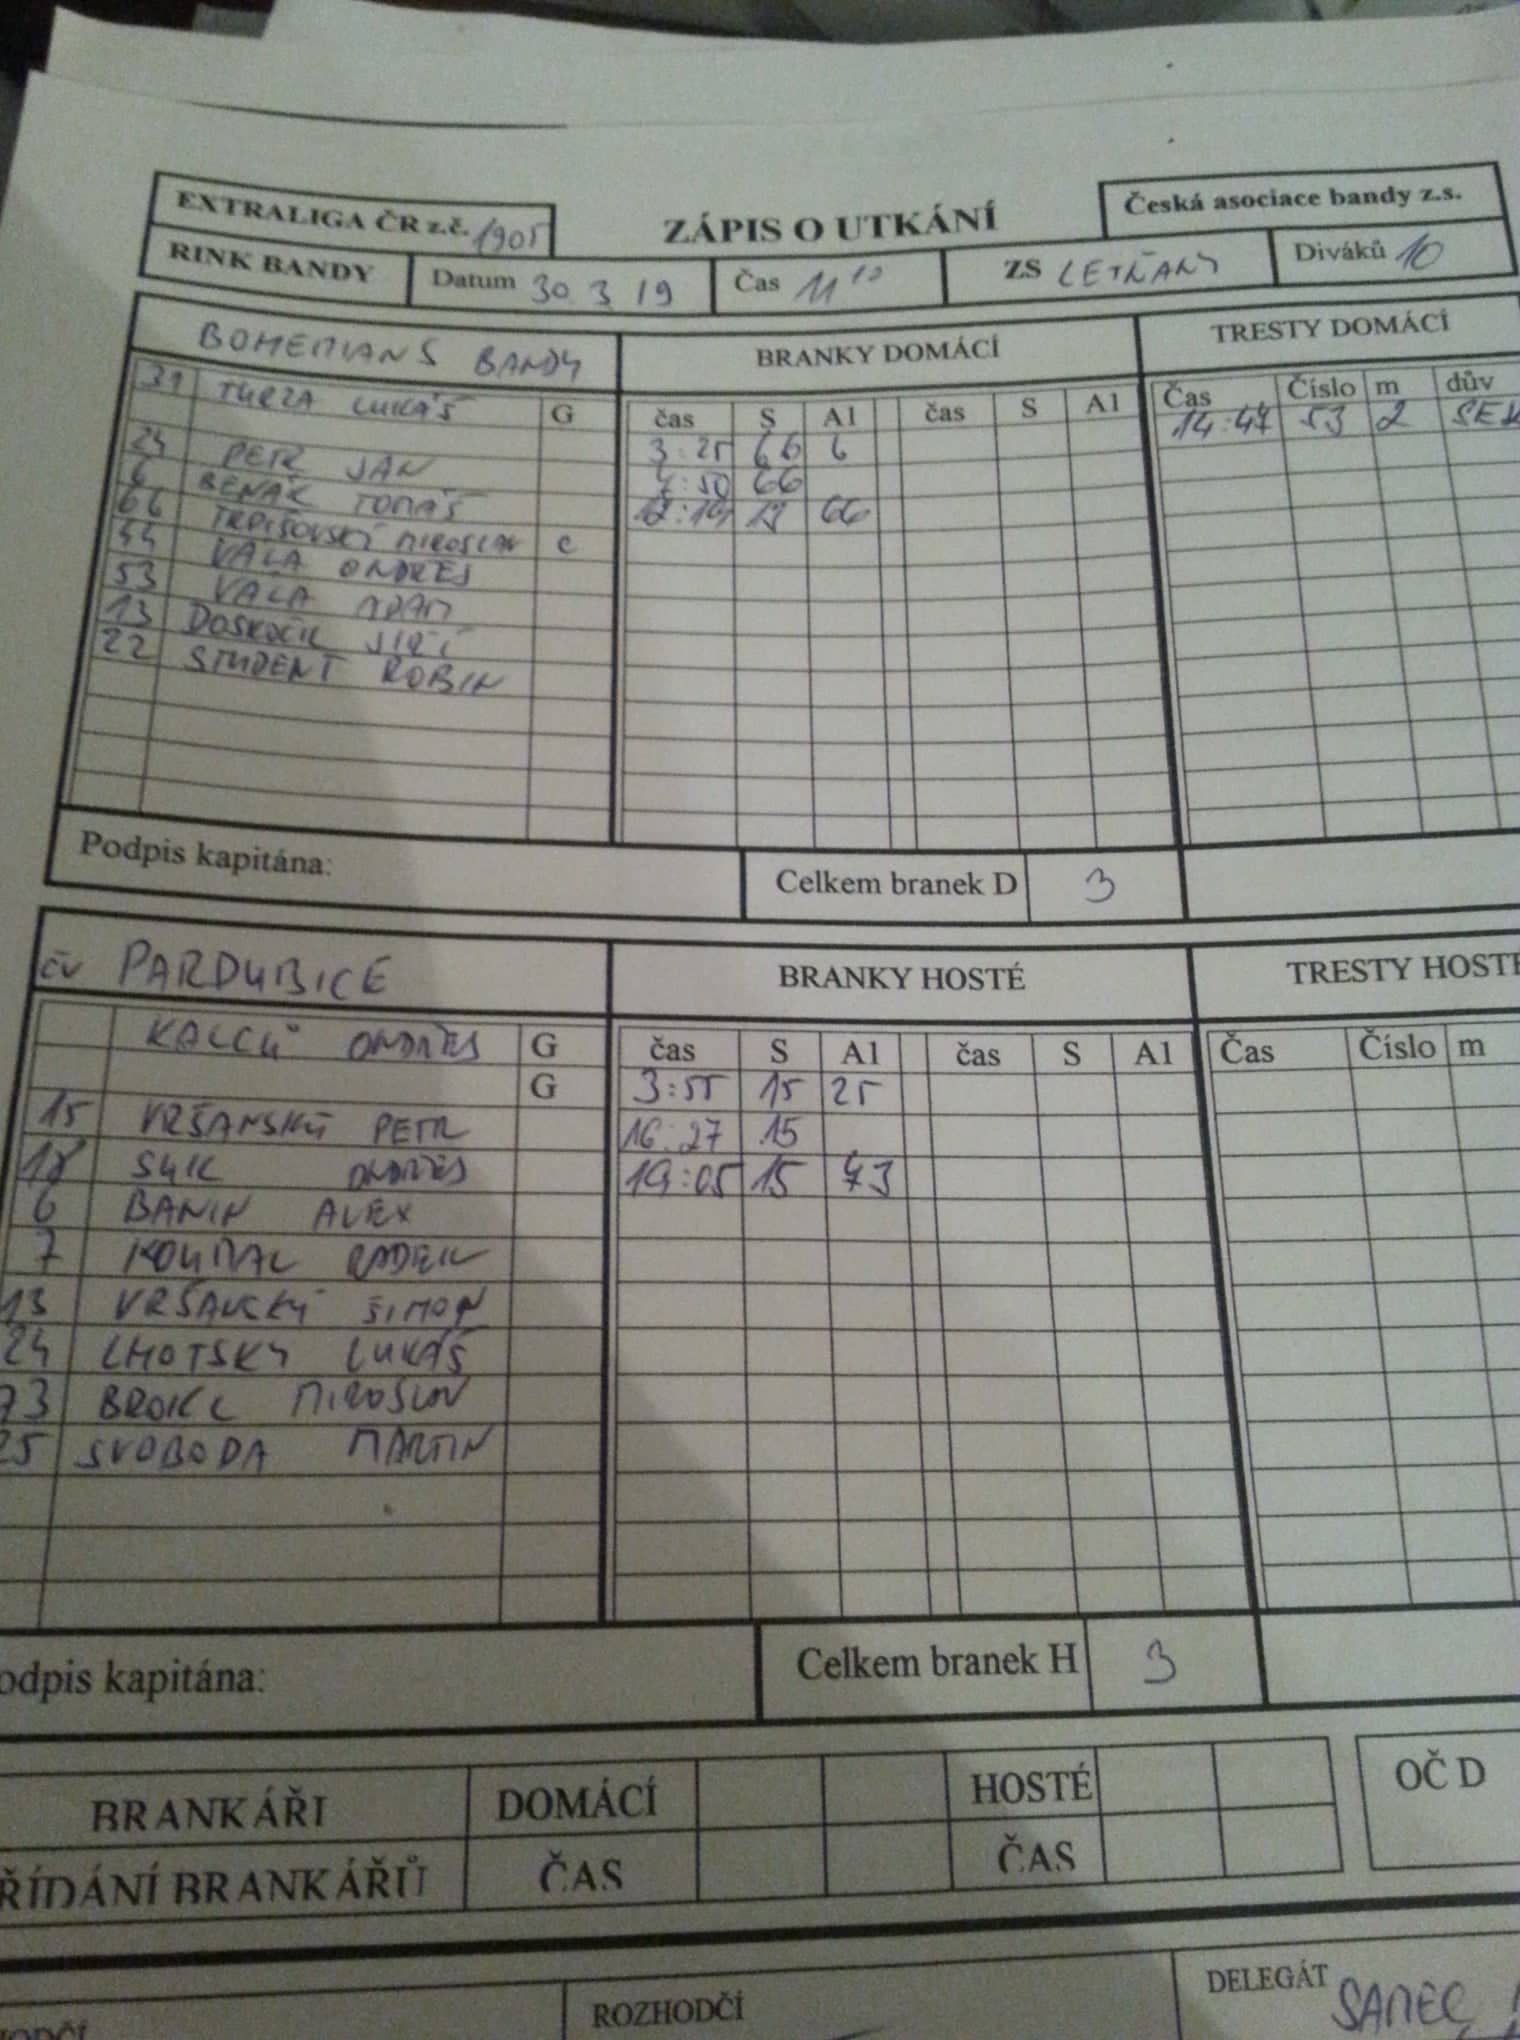 EXTRALIGA ČR z.č. 1905 ZÁPIS O UTKÁNÍ Česká asociace bandy z.s.
RINK BANDY Datum 30 3 19 Čas 11 10 ZS LETŇANY Diváků 10
BOHEMIANS BANDY BRANKY DOMÁCÍ TRESTY DOMÁCÍ
31 TURZA LUKÁŠ G čas S A1 čas S A1 Čas Číslo m dův
3:25 66 6 14:47 53 2 SEK
24 PETR JAN 7:50 66
6 BENÁK TOMÁŠ 66
66 TRPIŠOVSKÝ MIROSLAV C
44 VÁLA ONDŘEJ
53 VÁLA ADAM
13 DOSKOČIL JIŘÍ
22 STUDENT ROBIN
Podpis kapitána: Celkem branek D 3
ČV PARDUBICE BRANKY HOSTÉ TRESTY HOSTÉ
ONDŘEJ G čas S A1 čas S A1 Čas Číslo m
G 3:55 15 25
15 VRŠANSKÝ PETR 16:27 15
18 SUK ONDŘEJ 19:05 15 73
6 BANIN ALEX
7 KOUMAL RADEK
13 VRŠANSKÝ ŠIMON
24 LHOTSKÝ LUKÁŠ
73 MIROSLAV
25 SVOBODA MARTIN
odpis kapitána: Celkem branek H 3
BRANKÁŘI DOMÁCÍ HOSTÉ OČ D
ŘÍDÁNÍ BRANKÁŘŮ ČAS ČAS
HODČÍ ROZHODČÍ DELEGÁT SAMEC